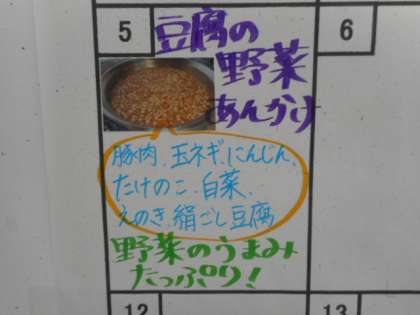 5
豆腐の
野菜
あんかけ
6
豚肉、玉ネギ、にんじん、
たけのこ、白菜、
えのき、絹ごし豆腐
野菜のうまみ
たっぷり!
12
13